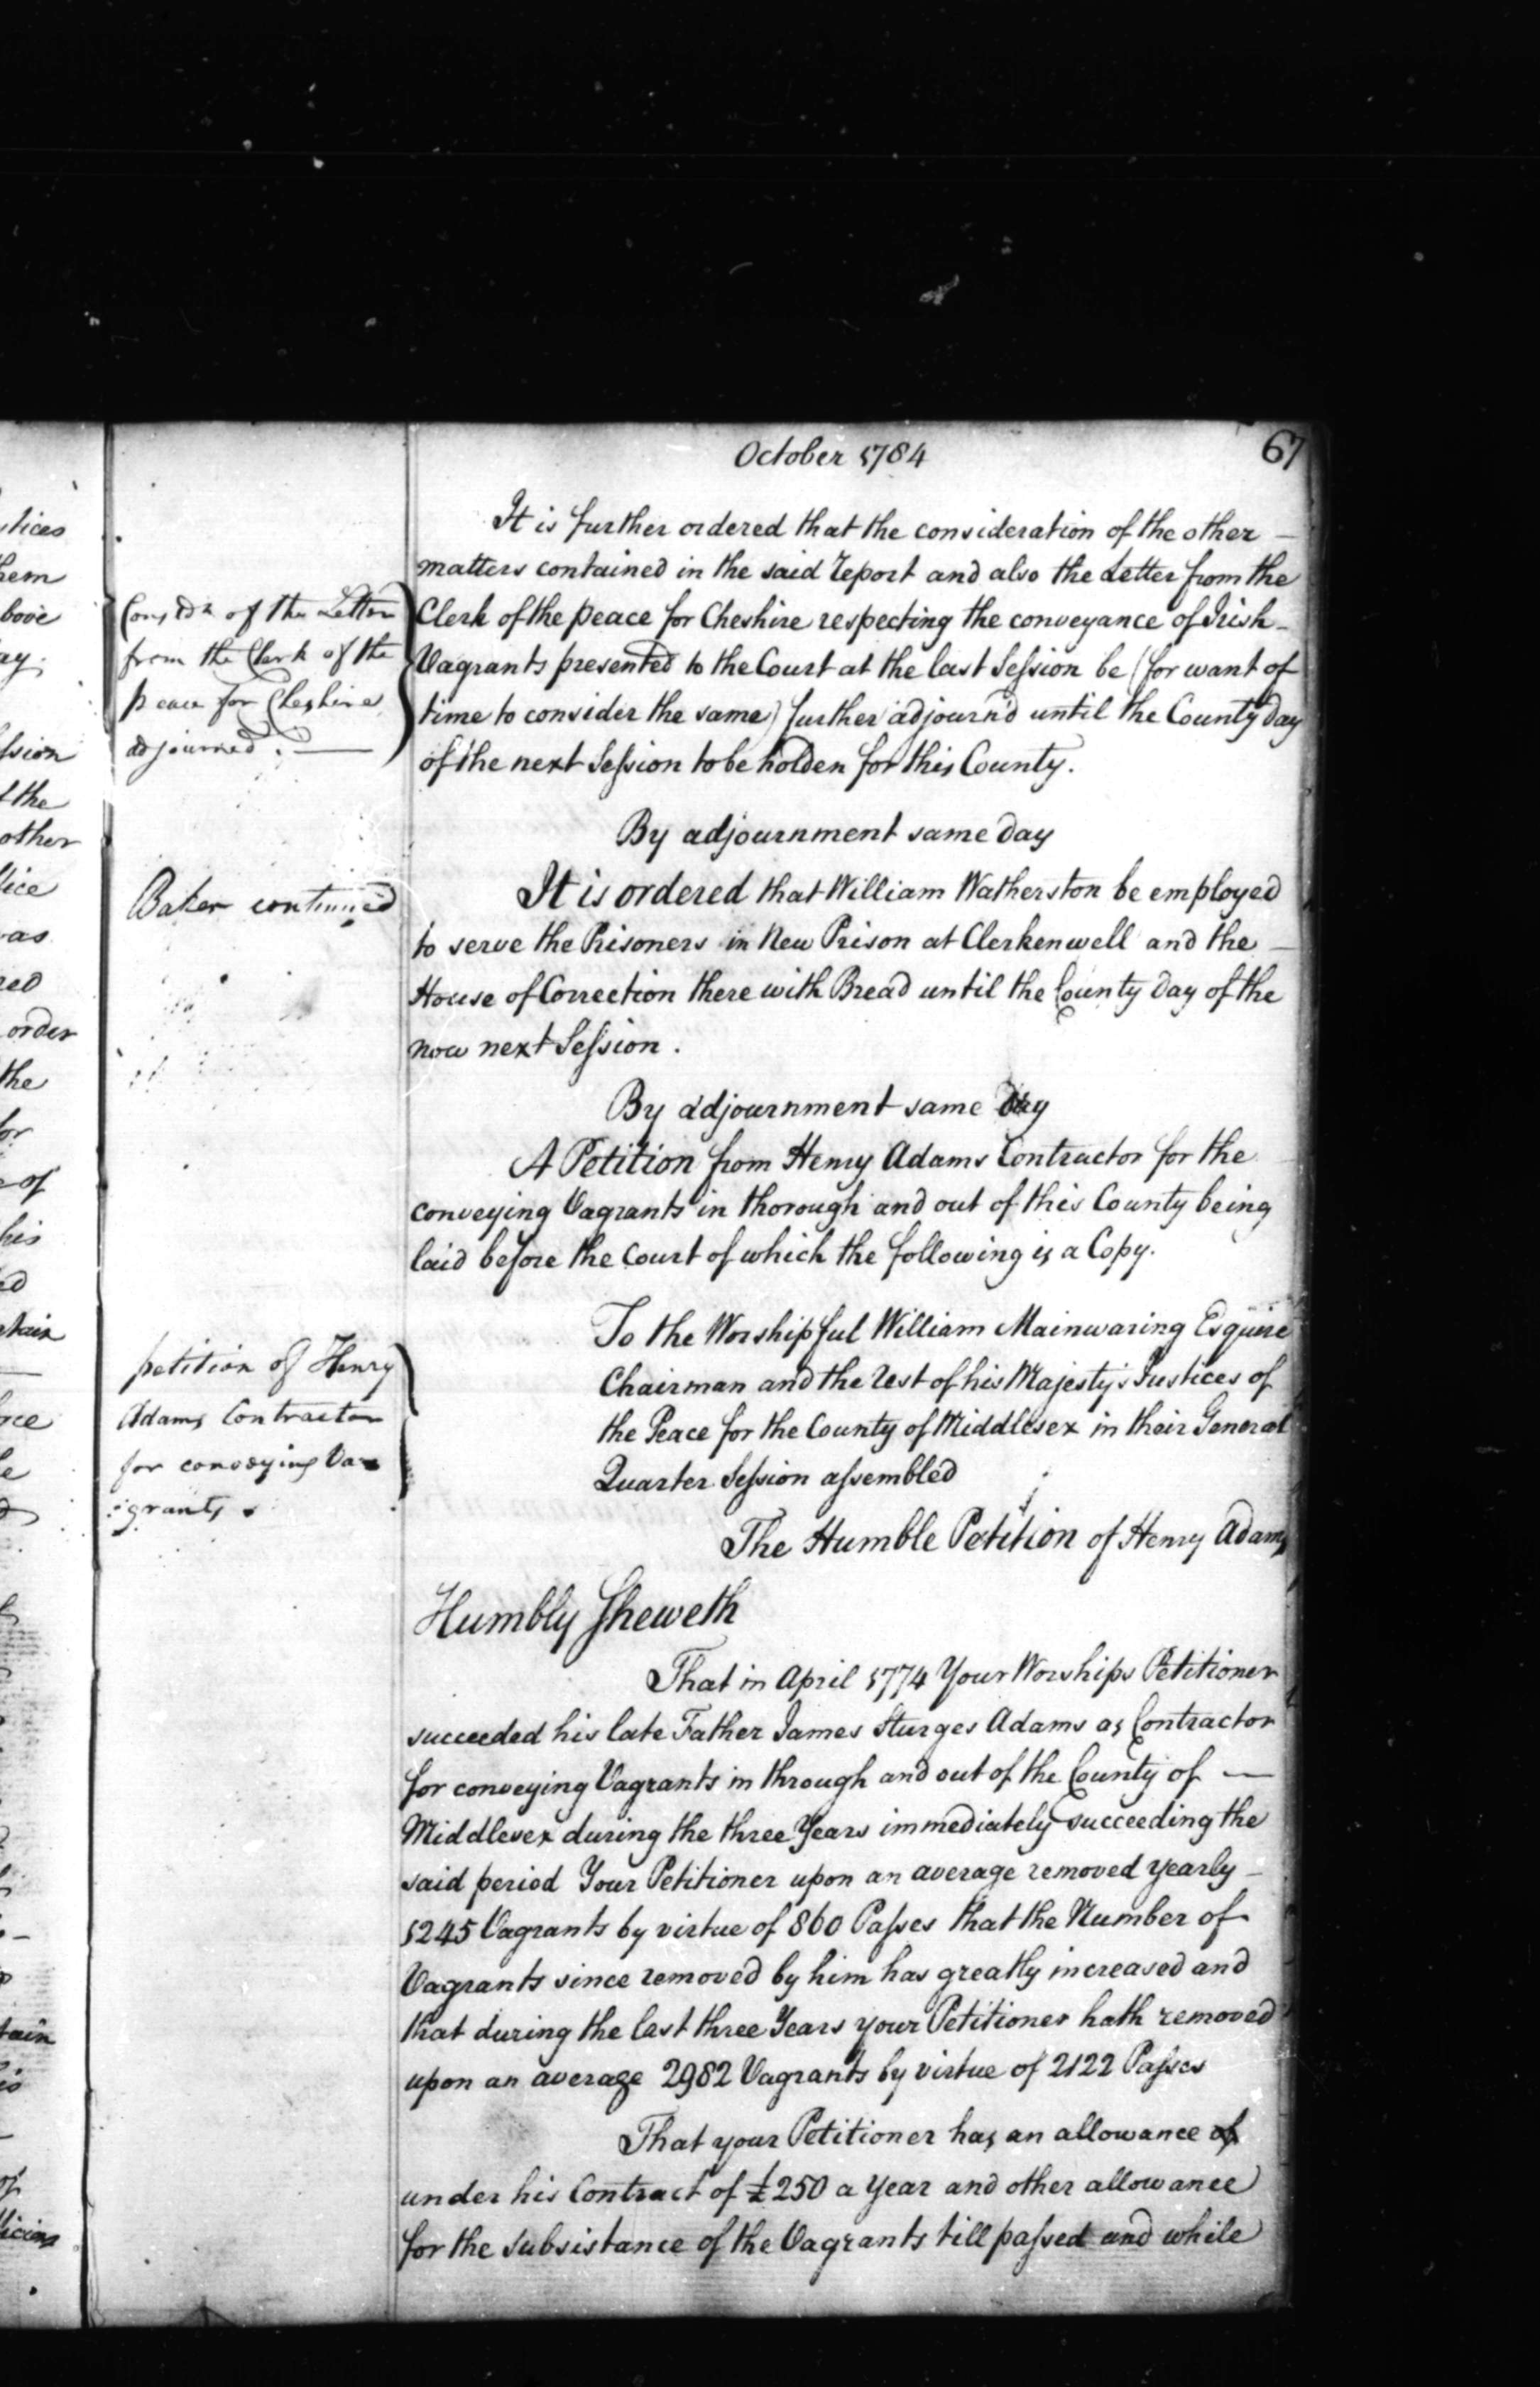 October 1784
67
It is further ordered that the consideration of the other
matters contained in the said report and also the Letter from the
Clerk of the peace for Cheshire respecting the conveyance of Irish
Vagrants presented to the Court at the last Session be (for want of
time to consider the same) further adjourn'd until the County day
of the next Session to be holden for this County.
of the Letter
from the Clerk of the
peace for Cheshire
adjourned.
By adjournment same day
Baker continued
It is ordered that William Watherston be employed
to serve the Prisoners in New Prison at Clerkenwell and the
House of Correction there with Bread until the County day of the
now next Session.
By adjournment same day
A Petition from Henry Adams Contractor for the
conveying Vagrants in thorough and out of this County being
laid before the Court of which the following is a Copy.
petition of Henry
Adams Contractor
for conveying Va
grants
To the Worshipful William Mainwaring Esquire
Chairman and the rest of his Majesty's Justices of
the Peace for the County of Middlesex in their General
Quarter Session assembled
The Humble Petition of Henry Adams
Humbly Sheweth
That in April 1774 Your Worships Petitioner
succeeded his late Father James Sturges Adams as Contractor
for conveying Vagrants in through and out of the County of
Middlesex during the three Years immediately succeeding the
said period Your Petitioner upon an average removed yearly
1245 Vagrants by virtue of 860 Passes that the Number of
Vagrants since removed by him has greatly increased and
that during the last three Years your Petitioner hath removed
upon an average 2982 Vagrants by virtue of 2122 Passes
That your Petitioner has an allowance of
under his Contract of £250 a Year and other allowance
for the subsistance of the Vagrants till passed and while